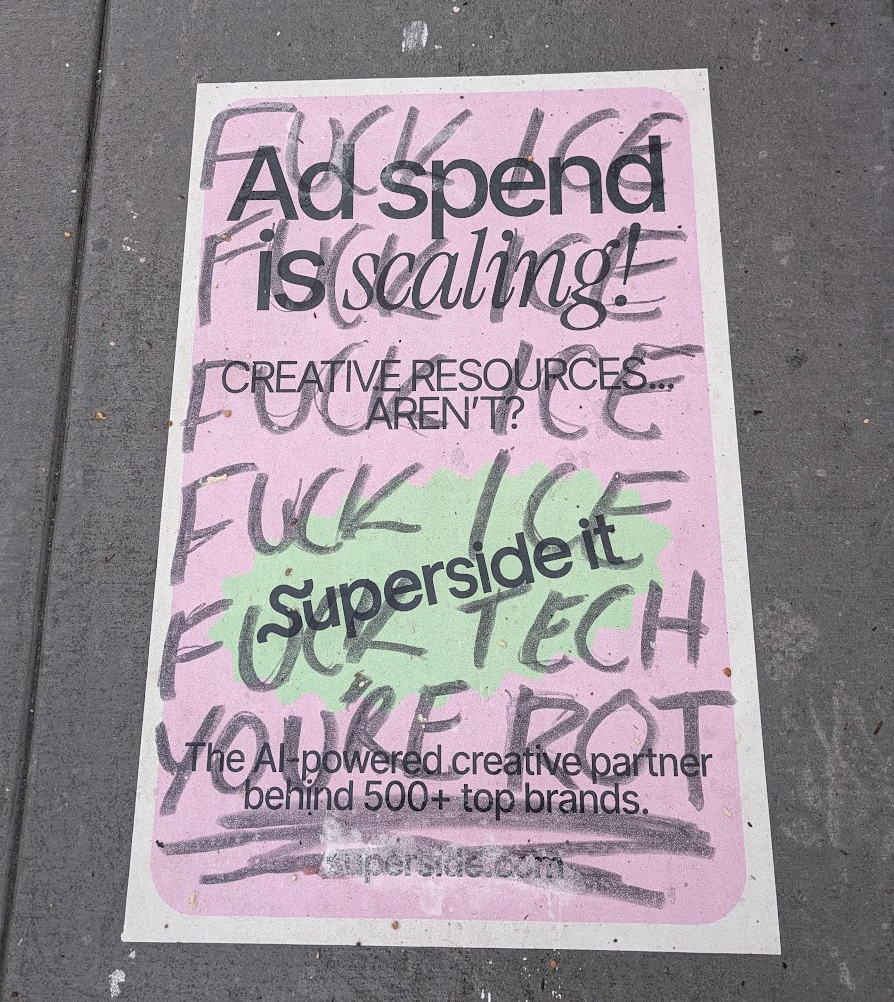 FUCK ICE
Ad spend
FUCK ICE
is scaling!
FUCK ICE
CREATIVE RESOURCES...
AREN'T?
FUCK ICE
Superside it
FUCK TECH
YOU'RE ROT
The AI-powered creative partner
behind 500+ top brands.
superside.com